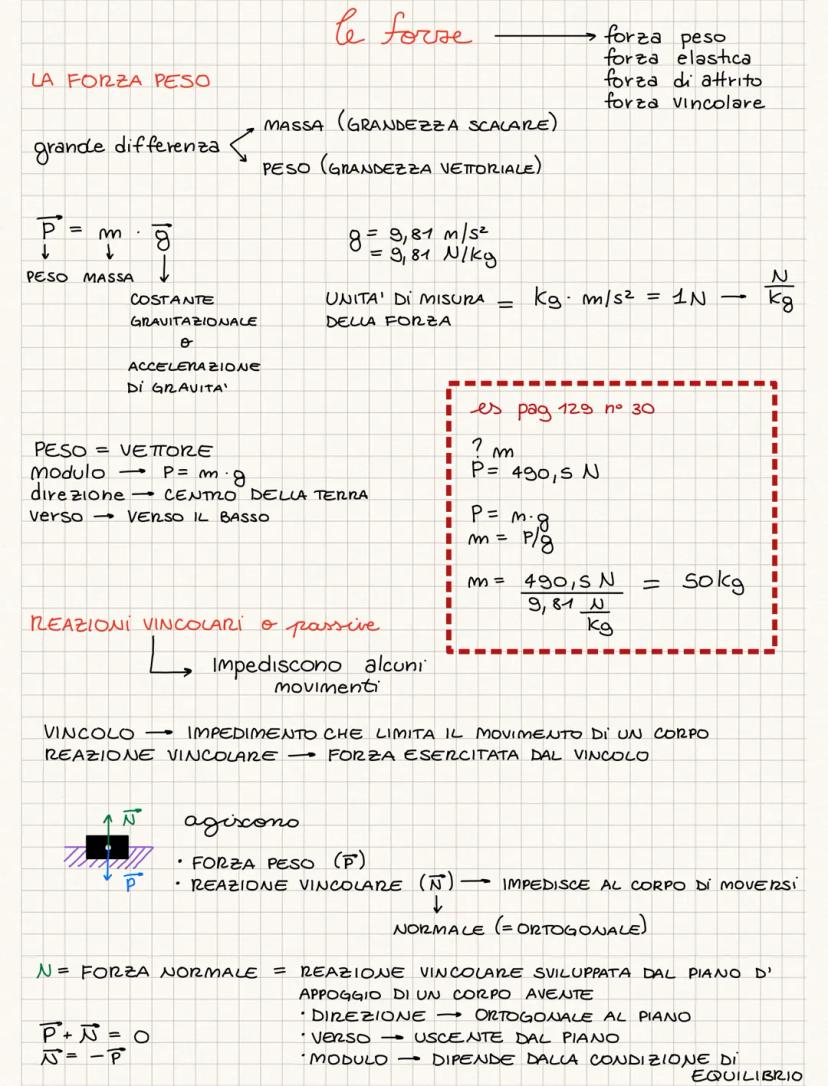 le forze → forza peso
forza elastica
forza di attrito
forza vincolare
LA FORZA PESO
grande differenza
MASSA (GRANDEZZA SCALARE)
PESO (GRANDEZZA VETTORIALE)
P⃗ = m · g⃗
↓ ↓ ↓
PESO MASSA
COSTANTE
GRAVITAZIONALE
o
ACCELERAZIONE
DI GRAVITA'
g = 9,81 m/s²
= 9,81 N/kg
UNITA' DI MISURA = kg · m/s² = 1N — N/kg
DELLA FORZA
es pag 129 n° 30
? m
P = 490,5 N
P = m·g
m = P/g
m = 490,5 N / 9,81 N/kg = 50 kg
PESO = VETTORE
modulo → P = m · g
direzione → CENTRO DELLA TERRA
verso → VERSO IL BASSO
REAZIONI VINCOLARI o passive
Impediscono alcuni
movimenti
VINCOLO → IMPEDIMENTO CHE LIMITA IL MOVIMENTO DI UN CORPO
REAZIONE VINCOLARE → FORZA ESERCITATA DAL VINCOLO
N⃗
P⃗
agiscono
· FORZA PESO (P⃗)
· REAZIONE VINCOLARE (N⃗) → IMPEDISCE AL CORPO DI MOVERSI
↓
NORMALE (= ORTOGONALE)
N = FORZA NORMALE = REAZIONE VINCOLARE SVILUPPATA DAL PIANO D'
APPOGGIO DI UN CORPO AVENTE
· DIREZIONE → ORTOGONALE AL PIANO
· VERSO → USCENTE DAL PIANO
· MODULO → DIPENDE DALLA CONDIZIONE DI
EQUILIBRIO
P⃗ + N⃗ = 0
N⃗ = - P⃗